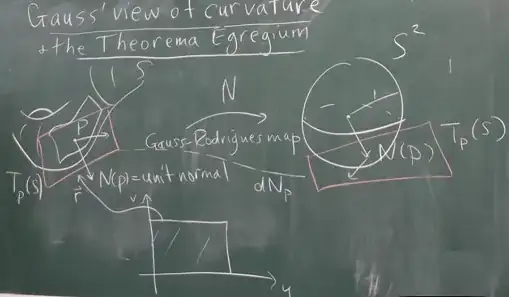 Gauss' view of curvature
& the Theorema Egregium
S
N
S²
P
Gauss-Rodrigues map
N(p)
T_p(S)
T_p(S)
N(p)=unit normal
dN_p
r⃗
v
u